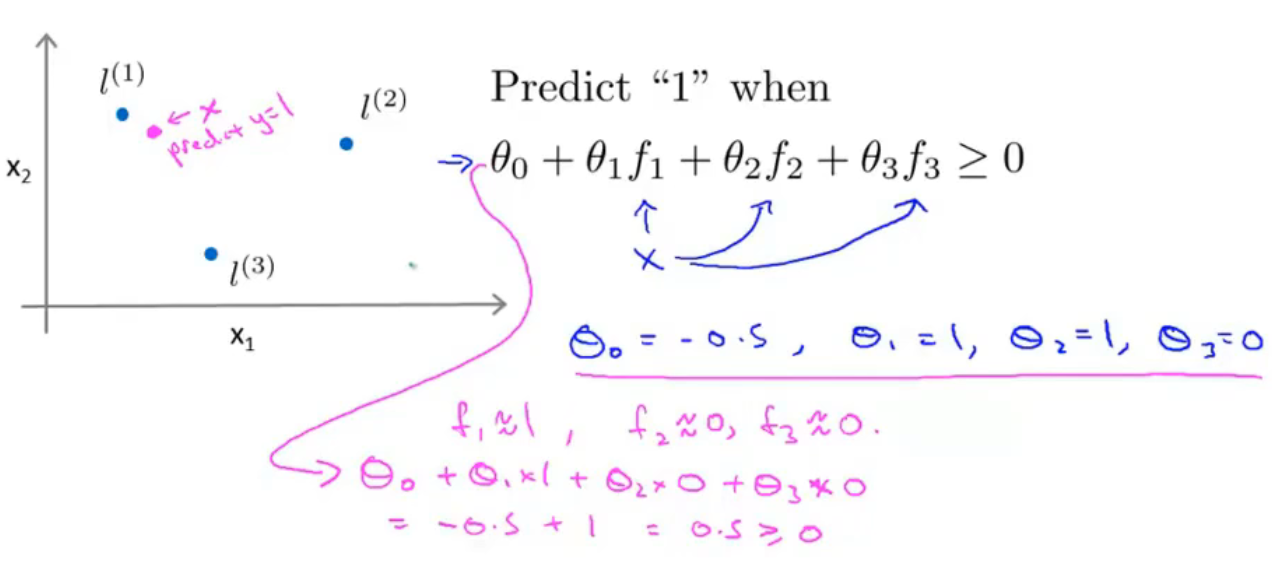 l⁽¹⁾
← x
predict y=1
l⁽²⁾
l⁽³⁾
x₂
x₁
Predict “1” when
⇒ θ₀ + θ₁f₁ + θ₂f₂ + θ₃f₃ ≥ 0
x
θ₀ = -0.5, θ₁ = 1, θ₂ = 1, θ₃ = 0
f₁ ≈ 1, f₂ ≈ 0, f₃ ≈ 0.
θ₀ + θ₁ × 1 + θ₂ × 0 + θ₃ × 0
= -0.5 + 1 = 0.5 ≥ 0